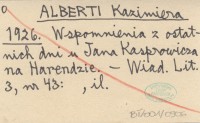 ALBERTI Kazimiera
1926. Wspomnienia z ostat-
nich dni u Jana Kasprowicza
na Harendzie. – Wiad. Lit.
3, nr 43: , il.